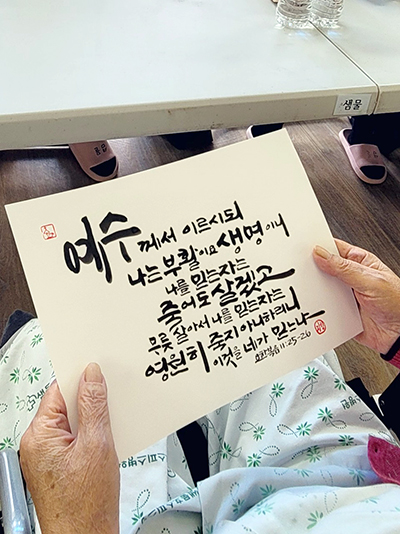 샘물
예수께서 이르시되
나는 부활이요 생명이니
나를 믿는자는
죽어도 살겠고
무릇 살아서 나를 믿는자는
영원히 죽지 아니하리니
이것을 네가 믿느냐
요한복음 11:25-26